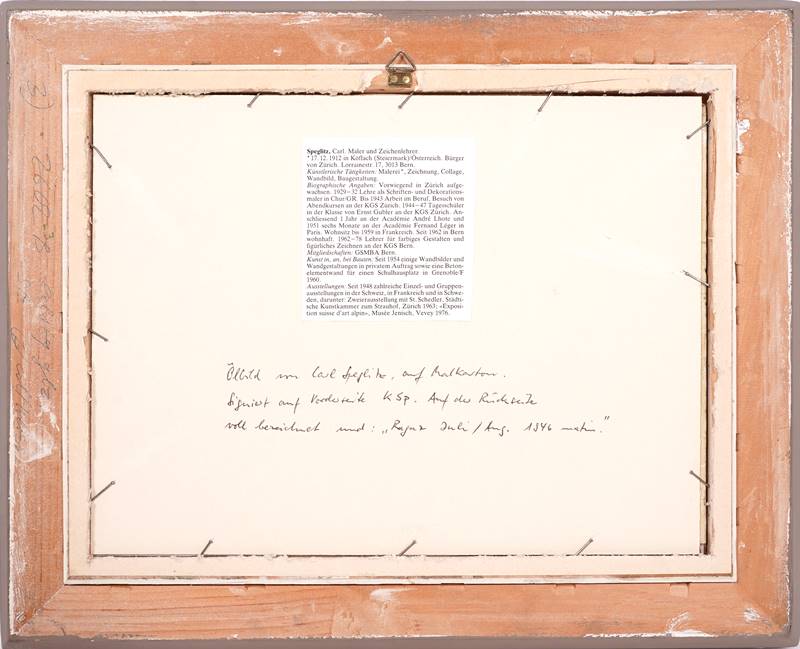 Speglitz, Carl. Maler und Zeichenlehrer.
*17.12.1912 in Köflach (Steiermark)/Österreich. Bürger
von Zürich. Lorrainestr. 17, 3013 Bern.
Künstlerische Tätigkeiten: Malerei*, Zeichnung, Collage,
Wandbild, Baugestaltung.
Biographische Angaben: Vorwiegend in Zürich aufge-
wachsen. 1929–32 Lehre als Schriften- und Dekorations-
maler in Chur/GR. Bis 1943 Arbeit im Beruf. Besuch von
Abendkursen an der KGS Zürich. 1944–47 Tagesschüler
in der Klasse von Ernst Gubler an der KGS Zürich. An-
schliessend 1 Jahr an der Académie André Lhote und
1951 sechs Monate an der Académie Fernand Léger in
Paris. Wohnsitz bis 1959 in Frankreich. Seit 1962 in Bern
wohnhaft. 1962–78 Lehrer für farbiges Gestalten und
figürliches Zeichnen an der KGS Bern.
Mitgliedschaften: GSMBA Bern.
Kunst in, an, bei Bauten: Seit 1954 einige Wandbilder und
Wandgestaltungen in privatem Auftrag sowie eine Beton-
elementwand für einen Schulhausplatz in Grenoble/F
1960.
Ausstellungen: Seit 1948 zahlreiche Einzel- und Gruppen-
ausstellungen in der Schweiz, in Frankreich und in Schwe-
den, darunter: Zweierausstellung mit St. Schedler, Städti-
sche Kunstkammer zum Strauhof, Zürich 1963; «Exposi-
tion suisse d'art alpin», Musée Jenisch, Vevey 1976.
Ölbild von Carl Speglitz, auf Malkarton.
Signiert auf Vorderseite KSp. Auf der Rückseite
voll bezeichnet und: „Ragaz Juli/Aug. 1946 matin."